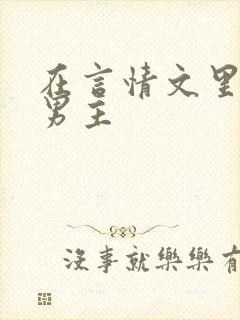 在言情文里
男主
沒事就樂樂有